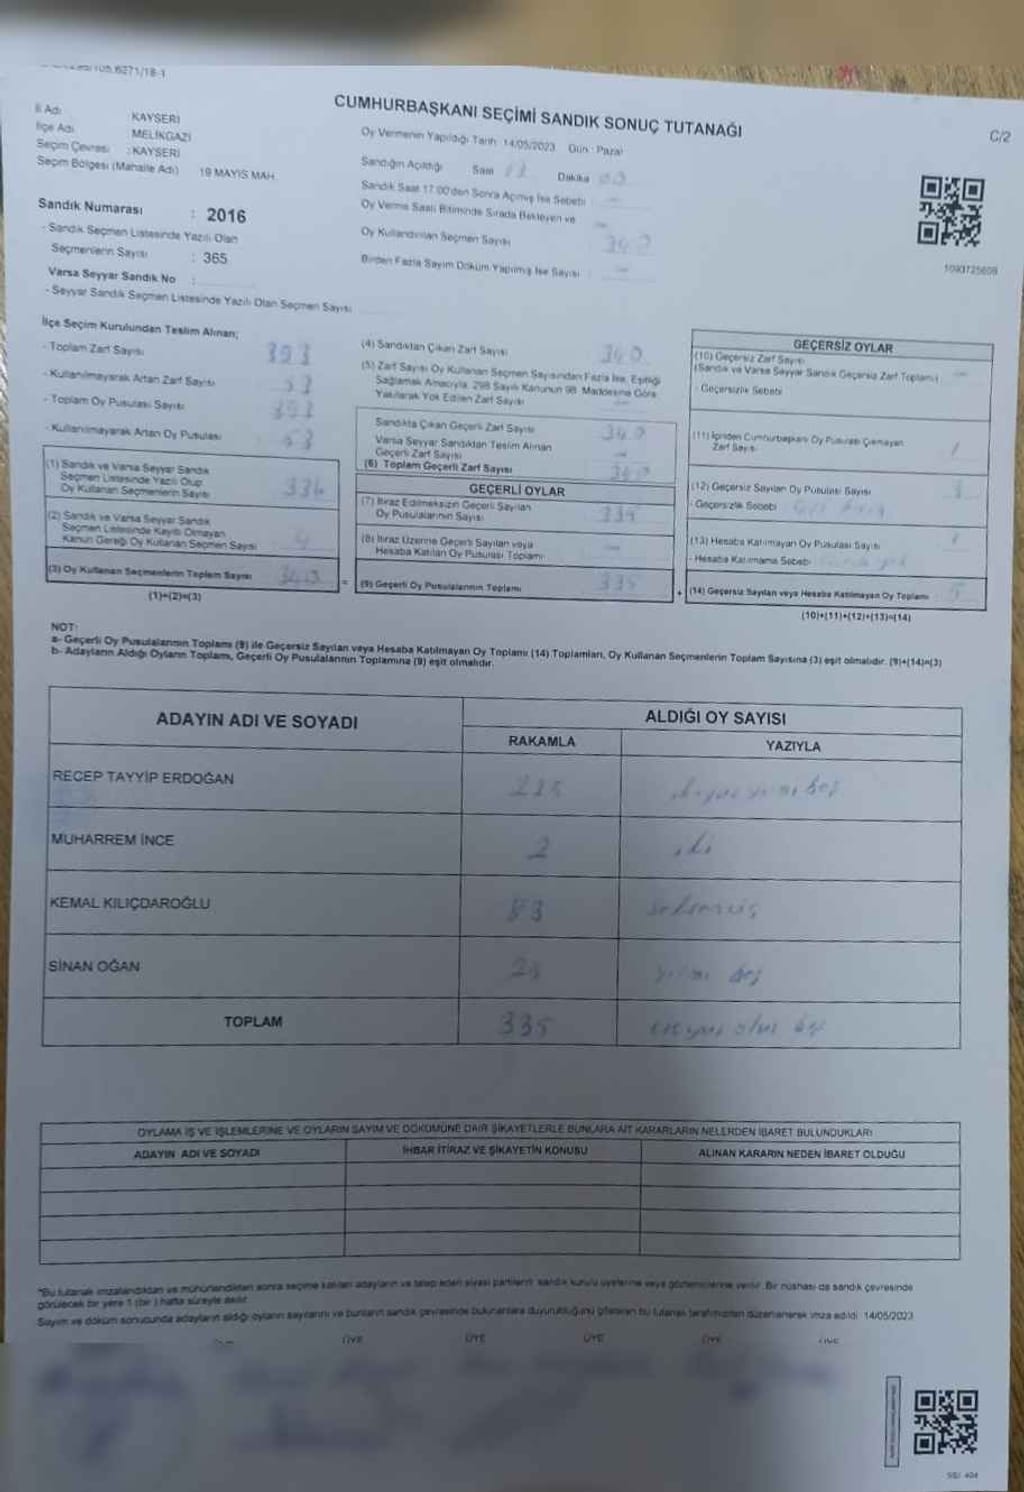 CUMHURBAŞKANI SEÇİMİ SANDIK SONUÇ TUTANAĞI
C/2
İl Adı : KAYSERİ
İlçe Adı : MELİKGAZİ
Seçim Çevresi : KAYSERİ
Seçim Bölgesi (Mahalle Adı) 19 MAYIS MAH.
Oy Vermenin Yapıldığı Tarih: 14/05/2023 Gün : Pazar
Sandığın Açıldığı Saat Dakika
Sandık Saat 17:00'den Sonra Açılmış İse Sebebi
Oy Verme Saati Bitiminde Sırada Bekleyen ve
Oy Kullandırılan Seçmen Sayısı
Birden Fazla Sayım Döküm Yapılmış İse Sayısı :
1093725609
Sandık Numarası : 2016
- Sandık Seçmen Listesinde Yazılı Olan
Seçmenlerin Sayısı : 365
Varsa Seyyar Sandık No :
- Seyyar Sandık Seçmen Listesinde Yazılı Olan Seçmen Sayısı
İlçe Seçim Kurulundan Teslim Alınan;
- Toplam Zarf Sayısı 393
- Kullanılmayarak Artan Zarf Sayısı 53
- Toplam Oy Pusulası Sayısı 393
- Kullanılmayarak Artan Oy Pusulası 53
(1) Sandık ve Varsa Seyyar Sandık
Seçmen Listesinde Yazılı Olup
Oy Kullanan Seçmenlerin Sayısı 336
(2) Sandık ve Varsa Seyyar Sandık
Seçmen Listesinde Kayıtlı Olmayan
Kanun Gereği Oy Kullanan Seçmen Sayısı 4
(3) Oy Kullanan Seçmenlerin Toplam Sayısı 340
(1)+(2)=(3)
(4) Sandıktan Çıkan Zarf Sayısı 340
(5) Zarf Sayısı Oy Kullanan Seçmen Sayısından Fazla İse, Eşitliği
Sağlamak Amacıyla, 298 Sayılı Kanunun 98. Maddesine Göre
Yakılarak Yok Edilen Zarf Sayısı
Sandıkta Çıkan Geçerli Zarf Sayısı 340
Varsa Seyyar Sandıktan Teslim Alınan
Geçerli Zarf Sayısı
(6) Toplam Geçerli Zarf Sayısı 340
GEÇERLİ OYLAR
(7) İtiraz Edilmeksizin Geçerli Sayılan
Oy Pusulalarının Sayısı 335
(8) İtiraz Üzerine Geçerli Sayılan veya
Hesaba Katılan Oy Pusulası Toplamı
= (9) Geçerli Oy Pusulalarının Toplamı 335
GEÇERSİZ OYLAR
(10) Geçersiz Zarf Sayısı
(Sandık ve Varsa Seyyar Sandık Geçersiz Zarf Toplamı)
- Geçersizlik Sebebi
(11) İçinden Cumhurbaşkanı Oy Pusulası Çıkmayan
Zarf Sayısı 1
(12) Geçersiz Sayılan Oy Pusulası Sayısı 3
- Geçersizlik Sebebi
(13) Hesaba Katılmayan Oy Pusulası Sayısı 1
- Hesaba Katılmama Sebebi
+ (14) Geçersiz Sayılan veya Hesaba Katılmayan Oy Toplamı 5
(10)+(11)+(12)+(13)=(14)
NOT:
a- Geçerli Oy Pusulalarının Toplamı (9) ile Geçersiz Sayılan veya Hesaba Katılmayan Oy Toplamı (14) Toplamları, Oy Kullanan Seçmenlerin Toplam Sayısına (3) eşit olmalıdır. (9)+(14)=(3)
b- Adayların Aldığı Oyların Toplamı, Geçerli Oy Pusulalarının Toplamına (9) eşit olmalıdır.
ADAYIN ADI VE SOYADI ALDIĞI OY SAYISI
RAKAMLA YAZIYLA
RECEP TAYYİP ERDOĞAN 225 ikiyüz yirmi beş
MUHARREM İNCE 2 iki
KEMAL KILIÇDAROĞLU 83 seksenüç
SİNAN OĞAN 25 yirmi beş
TOPLAM 335 üçyüz otuz beş
OYLAMA İŞ VE İŞLEMLERİNE VE OYLARIN SAYIM VE DÖKÜMÜNE DAİR ŞİKAYETLERLE BUNLARA AİT KARARLARIN NELERDEN İBARET BULUNDUKLARI
ADAYIN ADI VE SOYADI İHBAR İTİRAZ VE ŞİKAYETİN KONUSU ALINAN KARARIN NEDEN İBARET OLDUĞU
"Bu tutanak imzalandıktan ve mühürlendikten sonra seçime katılan adayların ve talep eden siyasi partilerin sandık kurulu üyelerine veya gözlemcilerine verilir. Bir nüshası da sandık çevresinde
görülecek bir yere 1 (bir) hafta süreyle asılır.
Sayım ve döküm sonucunda adayların aldığı oyların sayılarını ve bunların sandık çevresinde bulunanlara duyurulduğunu gösteren bu tutanak tarafımızdan düzenlenerek imza edildi. 14/05/2023
ÜYE ÜYE ÜYE ÜYE ÜYE